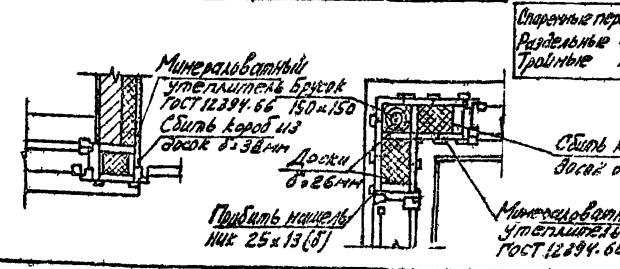 Спаренные пер
Раздельные
Тройные
Минераловатный
утеплитель
ГОСТ 12394-66
Брусок
150×150
Сбить короб из
досок δ=38мм
Доски
δ=26мм
Сбить к
досок
Прибить нащель-
ник 25×13(δ)
Минераловатн
утеплитель
ГОСТ 12394-66